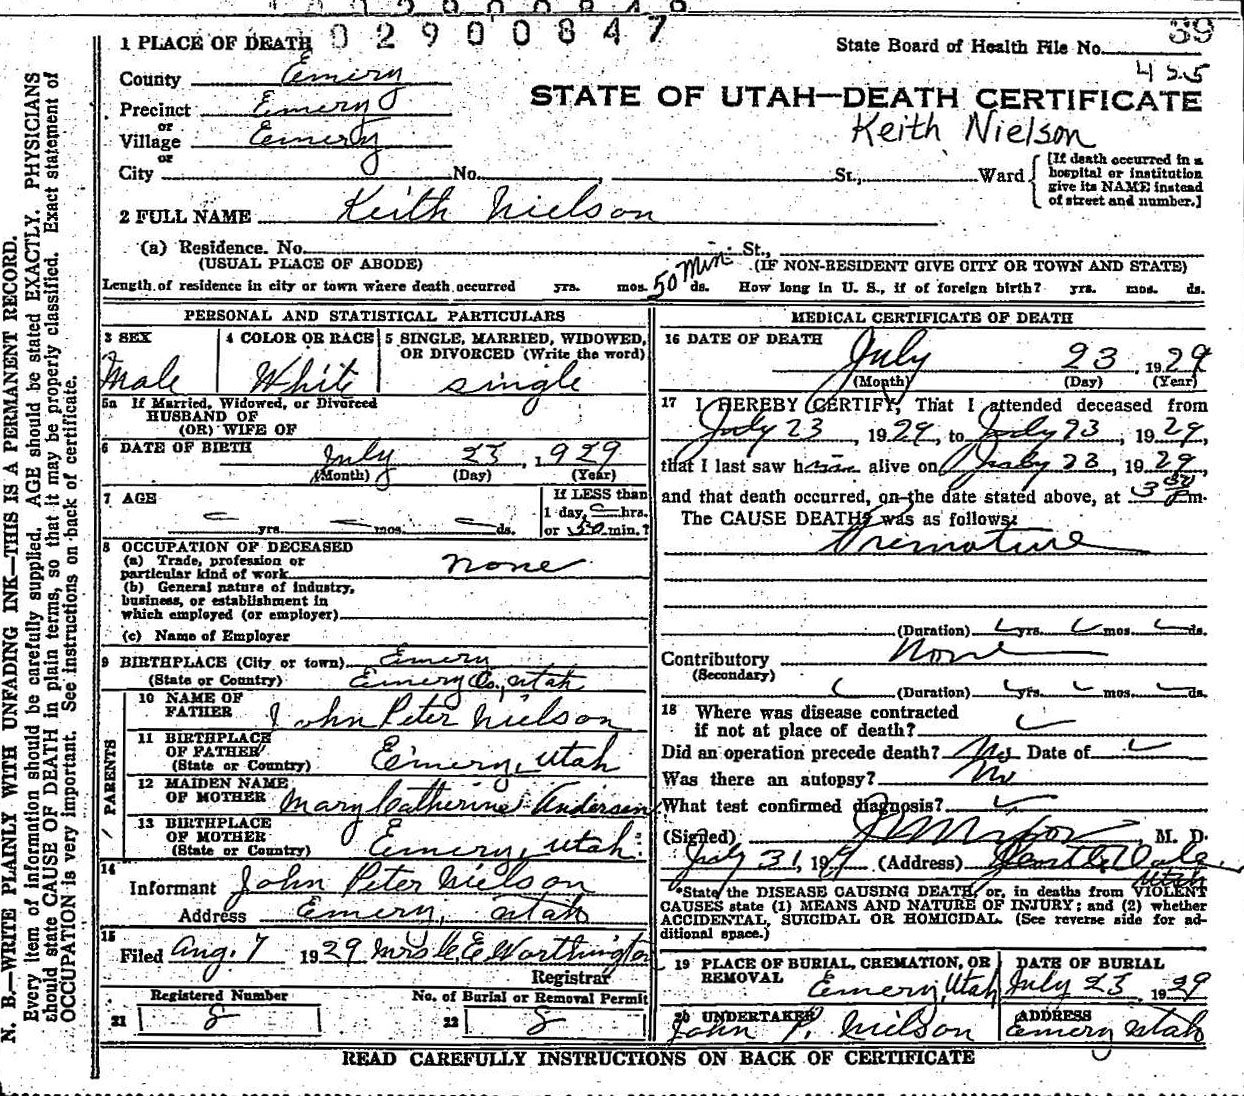 02900847
1 PLACE OF DEATH
State Board of Health File No. 39
County Emery
455
Precinct Emery
STATE OF UTAH—DEATH CERTIFICATE
or
Village Emery
Keith Nielson
or
City No. , St., Ward
[If death occurred in a
hospital or institution
give its NAME instead
of street and number.]
2 FULL NAME Keith Nielson
(a) Residence. No. St.,
(USUAL PLACE OF ABODE) (IF NON-RESIDENT GIVE CITY OR TOWN AND STATE)
Length of residence in city or town where death occurred yrs. mos. 50 Min. ds. How long in U. S., if of foreign birth? yrs. mos. ds.
PERSONAL AND STATISTICAL PARTICULARS
3 SEX 4 COLOR OR RACE 5 SINGLE, MARRIED, WIDOWED,
OR DIVORCED (Write the word)
Male White single
5a If Married, Widowed, or Divorced
HUSBAND OF
(OR) WIFE OF
6 DATE OF BIRTH July 23, 1929
(Month) (Day) (Year)
7 AGE If LESS than
1 day, hrs.
yrs. mos. ds. or 50 min.?
8 OCCUPATION OF DECEASED
(a) Trade, profession or
particular kind of work none
(b) General nature of industry,
business, or establishment in
which employed (or employer)
(c) Name of Employer
9 BIRTHPLACE (City or town) Emery
(State or Country) Emery Co., Utah
PARENTS
10 NAME OF
FATHER John Peter Nielson
11 BIRTHPLACE
OF FATHER
(State or Country) Emery, Utah
12 MAIDEN NAME
OF MOTHER Mary Catherine Andersen
13 BIRTHPLACE
OF MOTHER
(State or Country) Emery, Utah.
14
Informant John Peter Nielson
Address Emery, Utah
15
Filed Aug. 7 1929 Mrs. C. E. Worthington
Registrar
Registered Number No. of Burial or Removal Permit
21 8 22 8
MEDICAL CERTIFICATE OF DEATH
16 DATE OF DEATH
July 23, 1929
(Month) (Day) (Year)
17 I HEREBY CERTIFY, That I attended deceased from
July 23, 1929, to July 23, 1929,
that I last saw him alive on July 23, 1929,
and that death occurred, on the date stated above, at 3 30 Pm.
The CAUSE DEATH* was as follows:
Premature
(Duration) yrs. mos. ds.
Contributory None
(Secondary)
(Duration) yrs. mos. ds.
18 Where was disease contracted
if not at place of death?
Did an operation precede death? No Date of
Was there an autopsy? No
What test confirmed diagnosis?
(Signed) M. D.
July 31, 19 (Address) Castle Dale,
Utah
*State the DISEASE CAUSING DEATH, or, in deaths from VIOLENT
CAUSES state (1) MEANS AND NATURE OF INJURY; and (2) whether
ACCIDENTAL, SUICIDAL OR HOMICIDAL. (See reverse side for ad-
ditional space.)
19 PLACE OF BURIAL, CREMATION, OR DATE OF BURIAL
REMOVAL Emery, Utah July 23, 1929
20 UNDERTAKER ADDRESS
John P. Nielson Emery Utah
READ CAREFULLY INSTRUCTIONS ON BACK OF CERTIFICATE
N. B.—WRITE PLAINLY WITH UNFADING INK—THIS IS A PERMANENT RECORD.
Every item of information should be carefully supplied. AGE should be stated EXACTLY. PHYSICIANS
should state CAUSE OF DEATH in plain terms, so that it may be properly classified. Exact statement of
OCCUPATION is very important. See instructions on back of certificate.